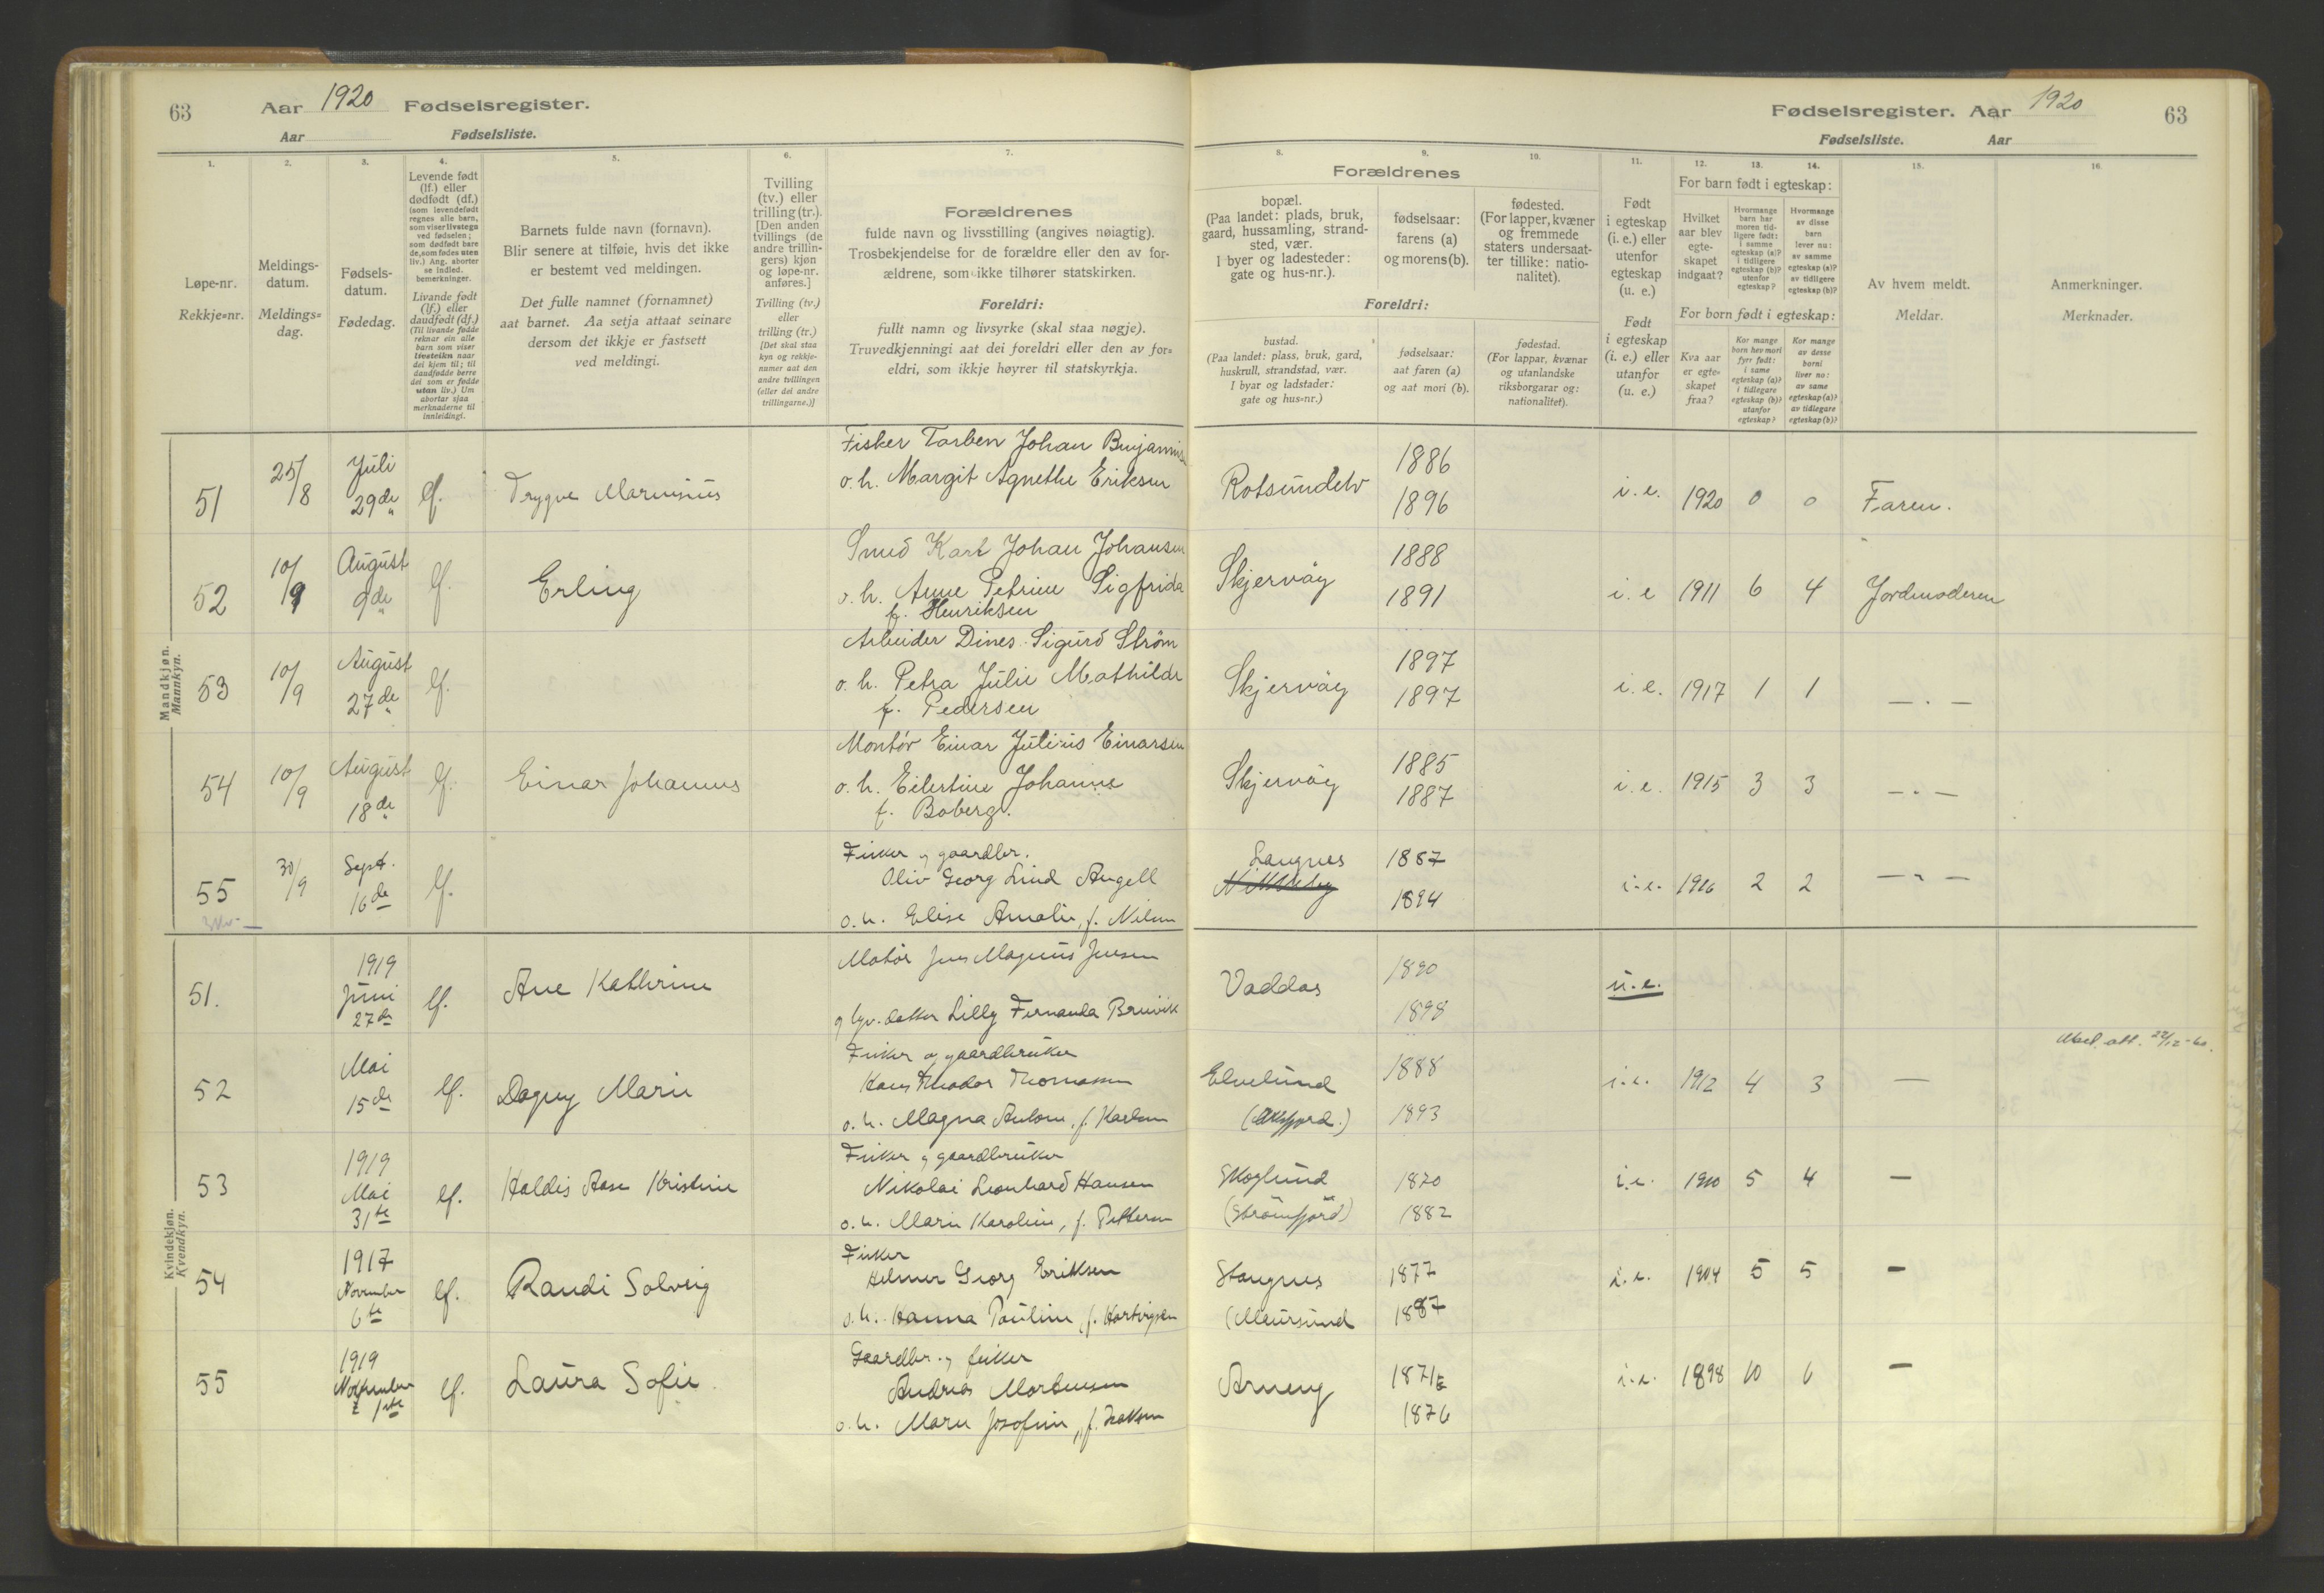 63 Aar 1920 Fødselsregister.
Aar Fødselsliste.
Fødselsregister. Aar 1920 63
Fødselsliste. Aar
1. 2. 3. 4. 5. 6. 7.
Løpe-nr.
Rekkje=nr.
Meldings-
datum.
Meldings=
dag.
Fødsels-
datum.
Fødedag.
Levende født
(lf.) eller
dødfødt (df.)
(som levendefødt
regnes alle barn,
som viser livstegn
ved fødselen;
som dødfødt bare
de, som fødes uten
liv.) Ang. aborter
se indled.
bemerkninger.
Livande født
(lf.) eller
daudfødt (df.)
(Til livande fødde
reknar ein alle
barn som viser
livsteikn naar
dei kjem til; til
daudfødde berre
dei som er fødde
utan liv.) Um
abortar sjaa
merknaderne til
innleidingi.
Barnets fulde navn (fornavn).
Blir senere at tilføie, hvis det ikke
er bestemt ved meldingen.
Det fulle namnet (fornamnet)
aat barnet. Aa setja attaat seinare
dersom det ikkje er fastsett
ved meldingi.
Tvilling
(tv.) eller
trilling (tr.).
[Den anden
tvillings (de
andre trillin-
gers) kjøn
og løpe-nr.
anføres.]
Tvilling (tv.)
eller
trilling (tr.)
[Det skal staa
kyn og rekkje-
numer aat den
andre tvillingen
(eller dei andre
trillingarne.)]
Forældrenes
fulde navn og livsstilling (angives nøiagtig).
Trosbekjendelse for de forældre eller den av for-
ældrene, som ikke tilhører statskirken.
Foreldri:
fullt namn og livsyrke (skal staa nøgje).
Truvedkjenningi aat dei foreldri eller den av for=
eldri, som ikkje høyrer til statskyrkja.
8. 9. 10. 11. 12. 13. 14. 15. 16.
Forældrenes
bopæl.
(Paa landet: plads, bruk,
gaard, hussamling, strand-
sted, vær.
I byer og ladesteder:
gate og hus-nr.).
fødselsaar:
farens (a)
og morens (b).
fødested.
(For lapper, kvæner
og fremmede
staters undersaat-
ter tillike: natio-
nalitet).
Foreldri:
bustad.
(Paa landet: plass, bruk, gard,
huskrull, strandstad, vær.
I byar og ladstader:
gate og hus=nr.)
fødselsaar:
aat faren (a)
og aat mori (b).
fødestad.
(For lappar, kvænar
og utanlandske
riksborgarar og:
nationalitet).
Født
i egteskap
(i. e.) eller
utenfor
egteskap
(u. e.)
Født
i egteskap
(i. e.) eller
utanfor
(u. e.)
For barn født i egteskap:
Hvilket
aar blev
egte-
skapet
indgaat?
Hvormange
barn har
moren tid-
ligere født:
i samme
egteskap (a)?
i tidligere
egteskap (b)?
utenfor
egteskap?
Hvormange
av disse
barn
lever nu:
av samme
egteskap (a)?
av tidligere
egteskap (b)?
For born født i egteskap:
Kva aar
er egte-
skapet
fraa?
Kor mange
born hev mori
fyrr født:
i same
egteskap (a)?
i tidlegare
egteskap (b)?
utanfor
egteskap?
Kor mange
av desse
borni
liver no:
av same
egteskap (a)?
av tidlegare
egteskap (b)?
Av hvem meldt.
Meldar.
Anmerkninger.
Merknader.
Mandkjøn.
Mannkyn.
51 25/8 Juli 29de lf. Trygve Marensius
Fisker Torben Johan Benjamins
o. h. Margit Agnethe Eriksen
Rotsundelv 1886 1896 i. e. 1920 0 0 Faren.
52 10/9 August 9de lf. Erling
Smed Karl Johan Johansen
o. h. Anne Petrine Sigfrida
f. Henriksen
Skjervøy 1888 1891 i. e 1911 6 4 Jordmoderen
53 10/9 August 27de lf.
Arbeider Dines Sigurd Strøm
o. h. Petra Julie Mathilde
f. Pedersen
Skjervøy 1897 1897 i. e. 1917 1 1 — " —
54 10/9 August 18de lf. Einar Johannes
Montør Einar Julius Einarsen
o. h. Eilertine Johanne
f. Boberg.
Skjervøy 1885 1887 i. e. 1915 3 3 — " —
55 30/9 Sept. 16de lf.
Fisker og gaardbr.
Oliv Georg Lind Angell
o. h. Elise Amalie, f. Nilsen
Langnes 1887 1894 i. e. 1916 2 2 — " —
Kvindekjøn.
Kvendkyn.
51. 1919 Juni 27de lf. Ane Kathrine
Matør Jens Magnus Jensen
og Lilly Fernanda Bruvik
Vaddas 1890 1898 u. e.
52 Mai 15de lf. Dagny Marie
Fisker og gaardbruker
Hans Theodor Thomassen
o. h. Magna Antone, f. Karlsen
Elvelund
(Oksfjord.)
1888 1893 i. e. 1912 4 3 —
att. 22/12-60.
53 1919 Mai 31te lf. Haldis Aase Kristine
Fisker og gaardbruker
Nikolai Leonhard Hansen
o. h. Marie Karoline, f. Pettersen
Skoglund
(Strømfjord)
1870 1882 i. e. 1910 5 4 —
54 1917 November 6te lf. Randi Solveig
Fisker
Helmer Georg Eriksen
o. h. Hanna Pauline, f. Hartvigsen
Stangnes
(Maursund
1877 1887 i. e. 1904 5 5 —
55 1919 November 1ste lf. Laura Sofie.
Gaardbr. og fisker
Andreas Mortensen
o. h. Marie Josefine, f. Isaksen
Arnøy 1871 1876 i. e. 1898 10 6 —